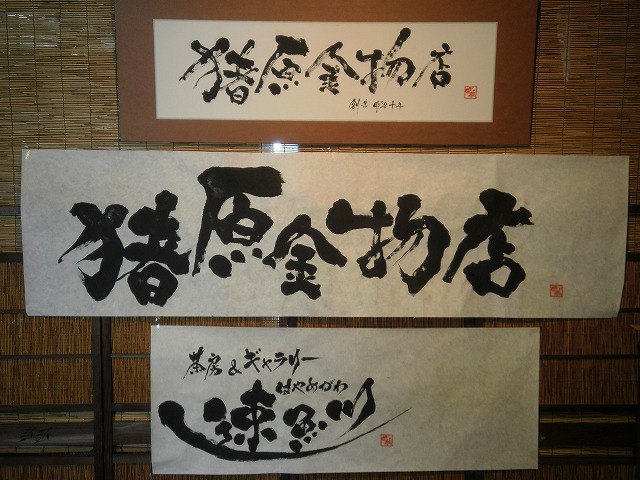 猪原金物店
創業 明治十年
猪原金物店
茶房&ギャラリー
はやめがわ
速魚川